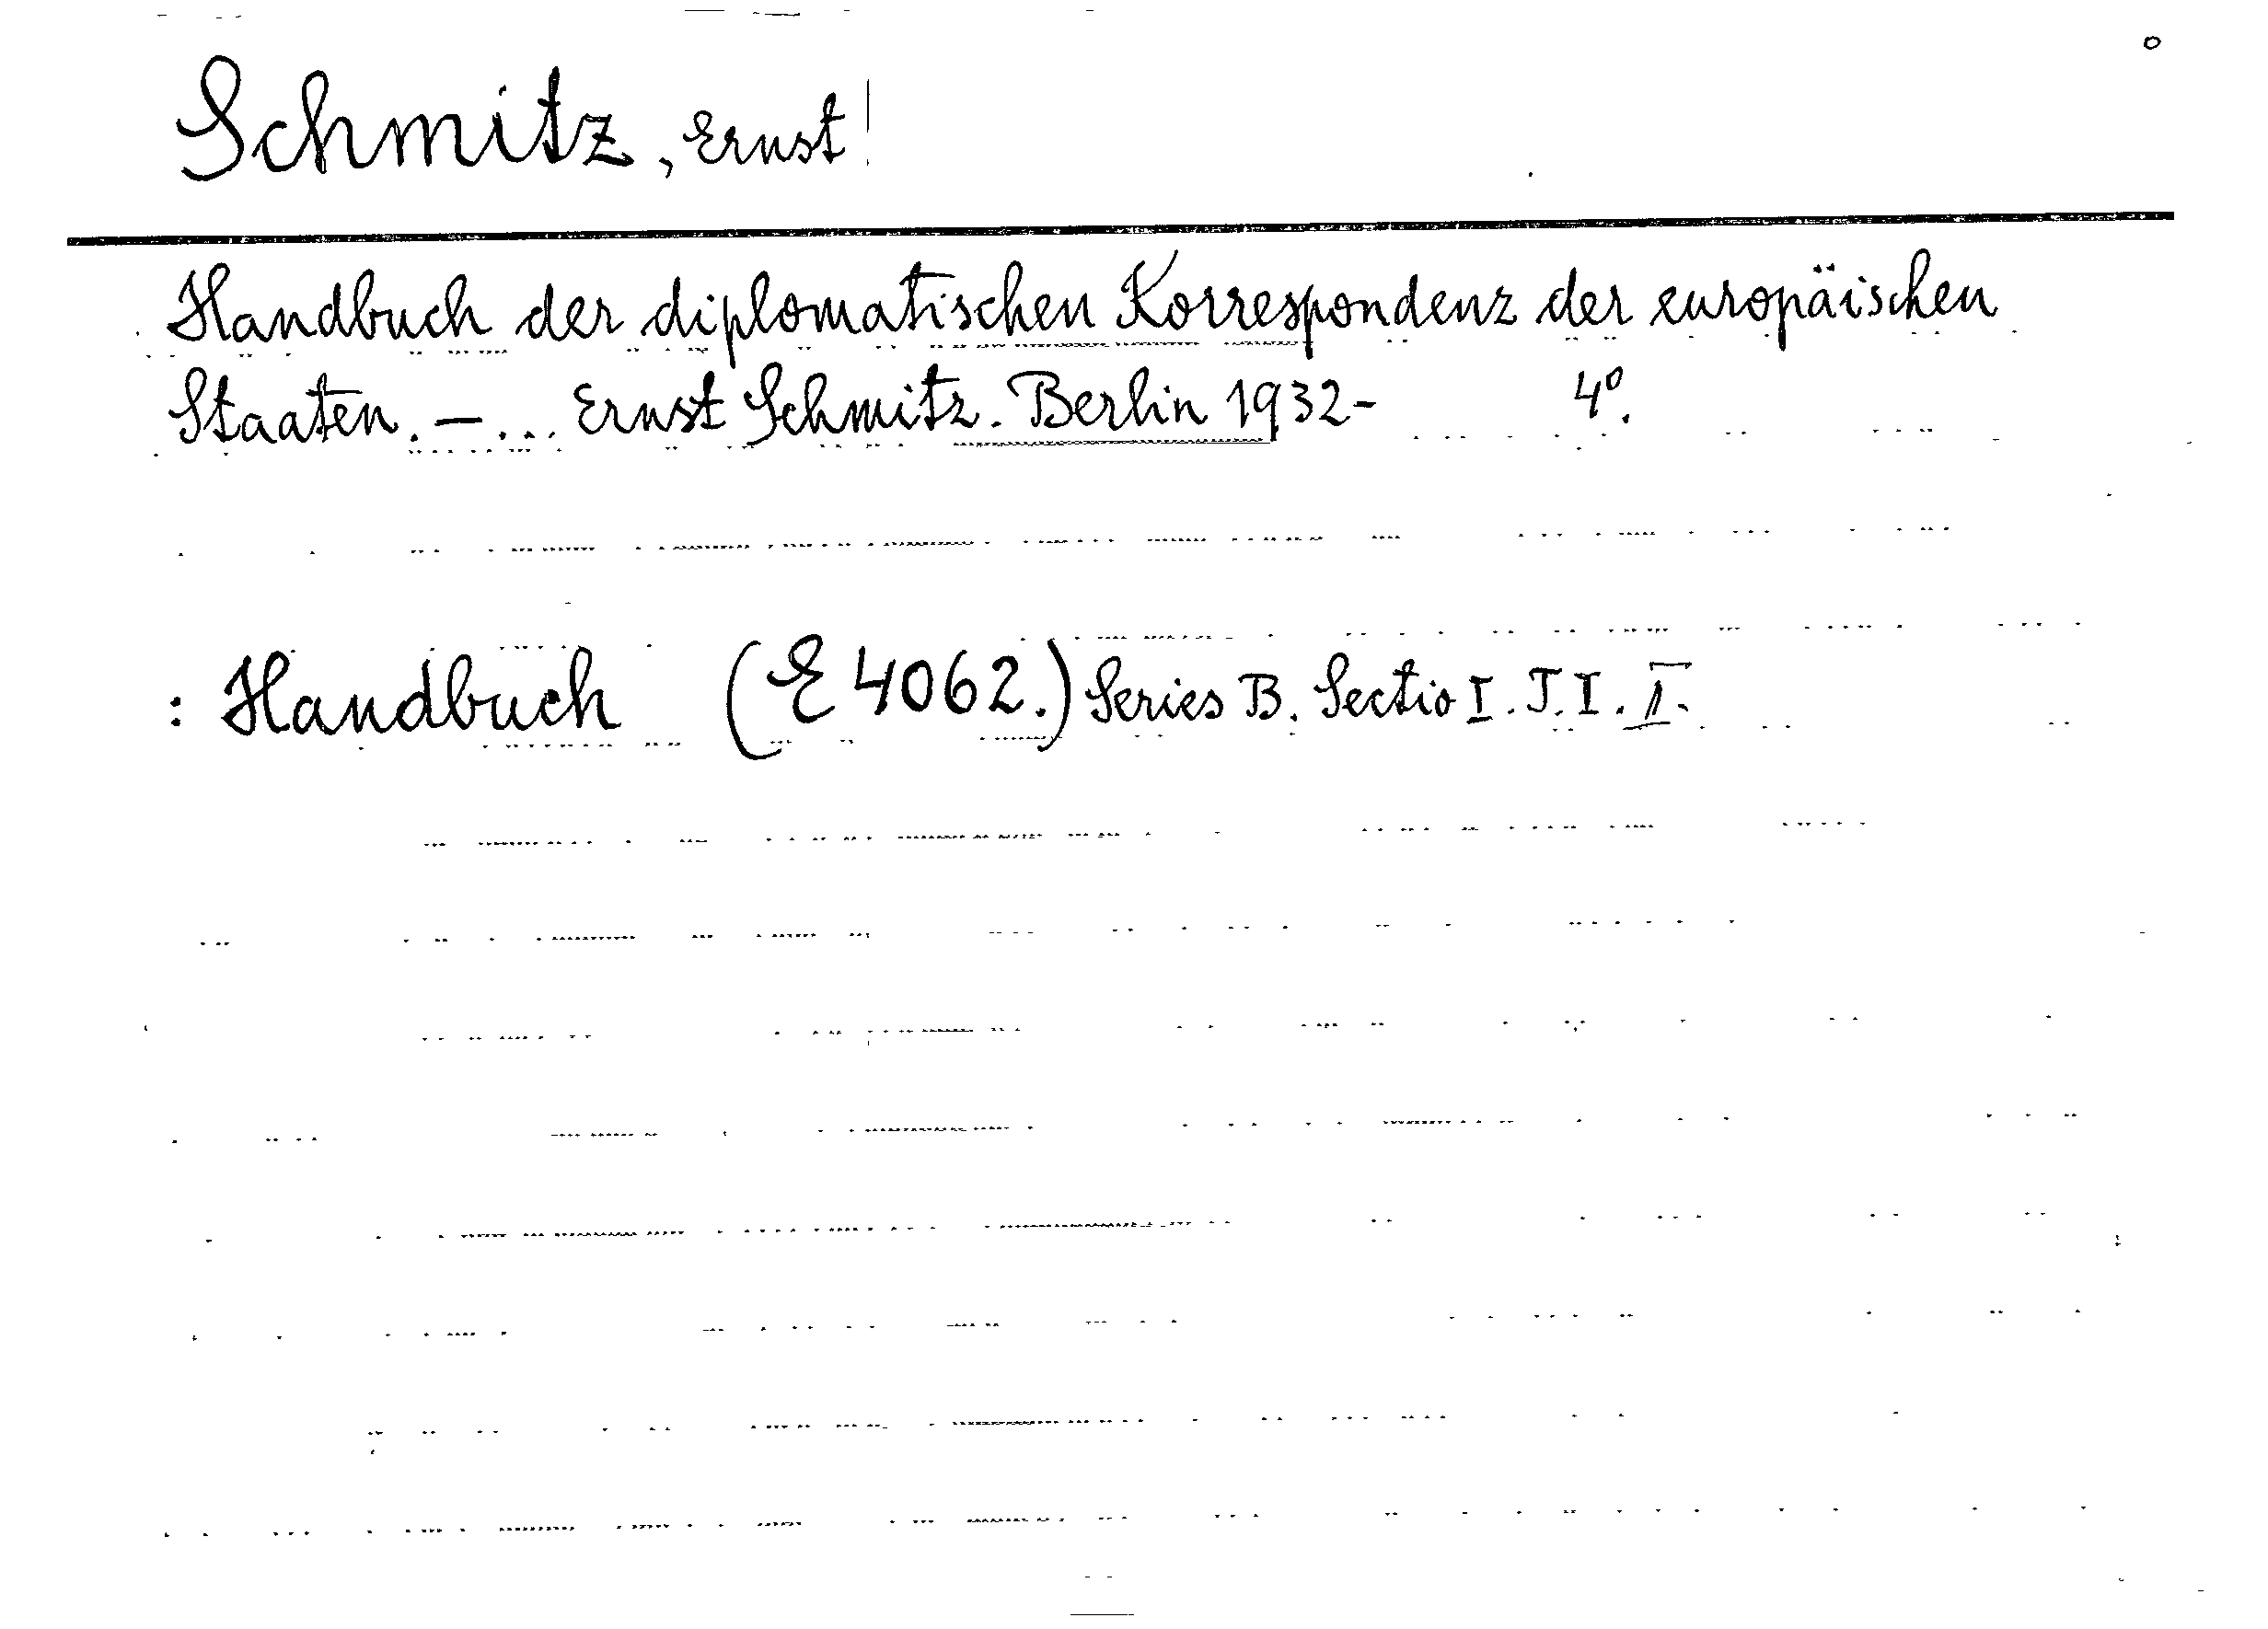 Schmitz, Ernst
Handbuch der diplomatischen Korrespondenz der europäischen
Staaten. — ... Ernst Schmitz. Berlin 1932- 4º.
: Handbuch (E 4062.) Series B. Sectio I. T. I. II.